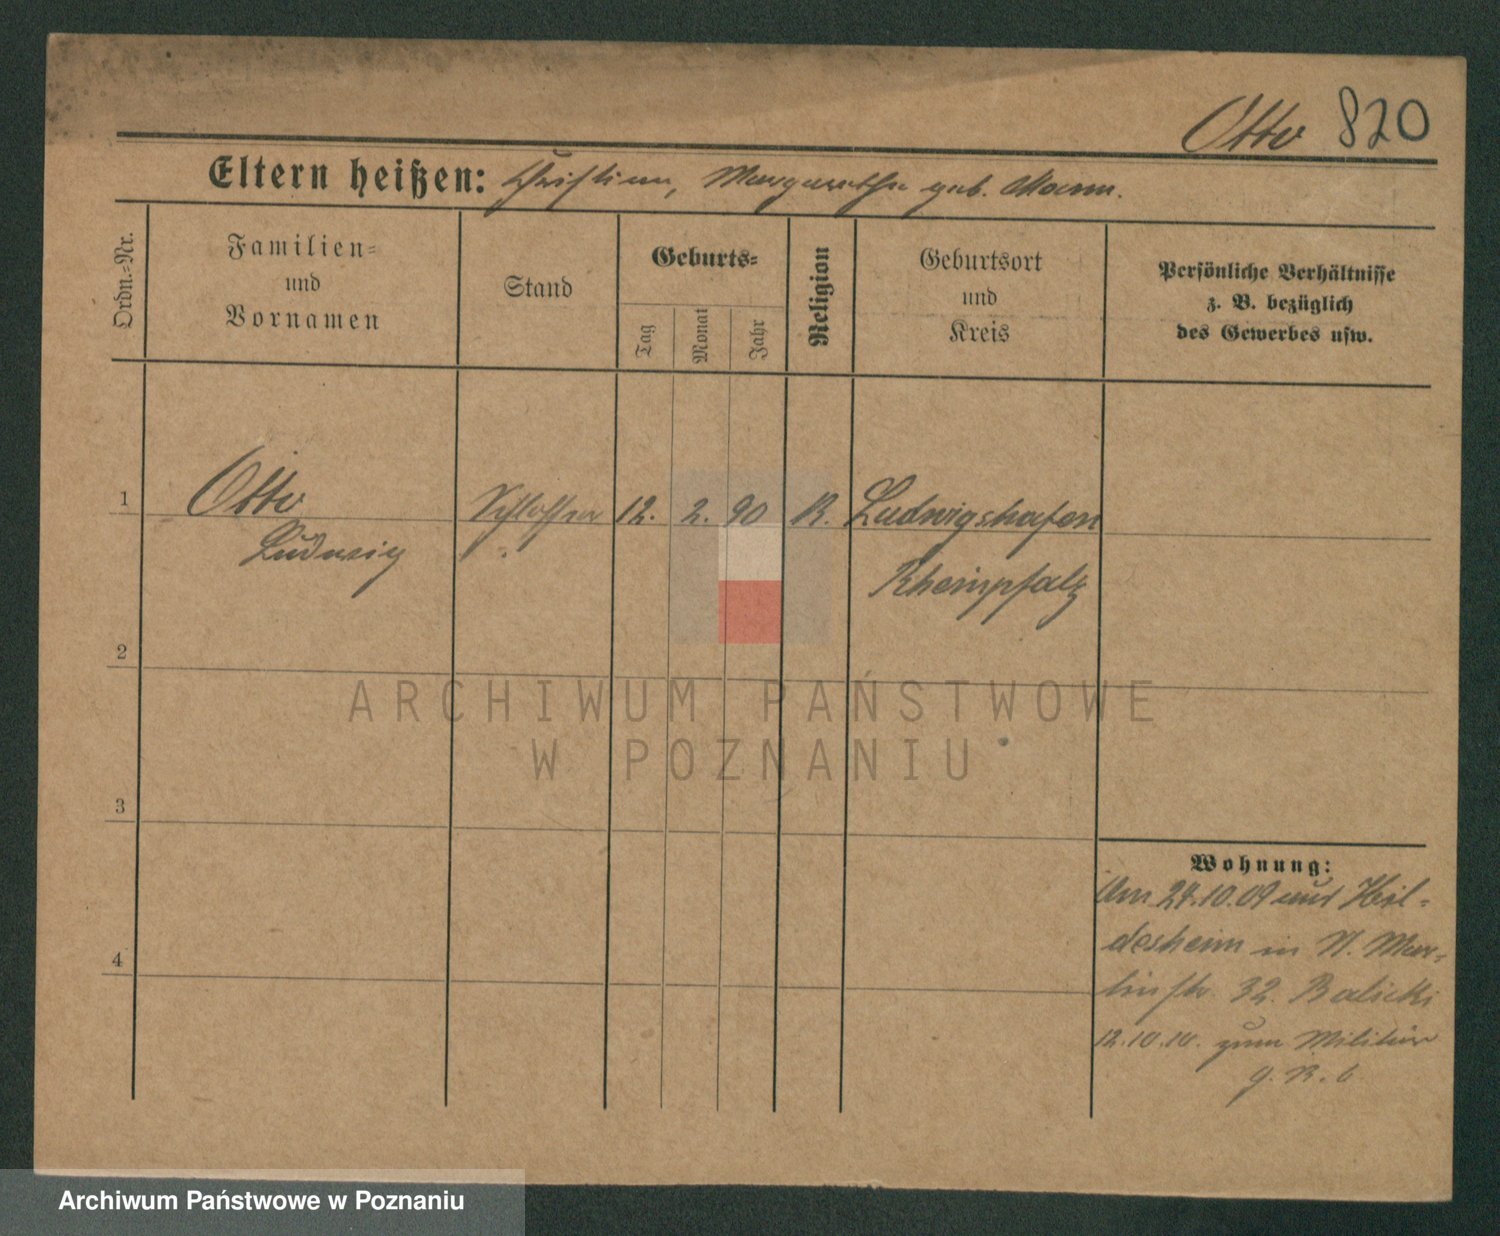 Otto 820
Eltern heißen: Christian, Margarethe geb. Mann.
Ordn.=Nr.
Familien=
und
Vornamen
Stand
Geburts=
Tag
Monat
Jahr
Religion
Geburtsort
und
Kreis
Persönliche Verhältnisse
z. B. bezüglich
des Gewerbes usw.
1 Otto Schlosser 12. 2. 90 R. Ludwigshafen
Ludwig
Rheinpfalz
2
3
4
Wohnung:
Am 24.10.09 aus Hil-
desheim in N. Mar-
tinstr. 32. Balicki
12.10.10. zum Militär
ARCHIWUM PAŃSTWOWE
W POZNANIU
Archiwum Państwowe w Poznaniu